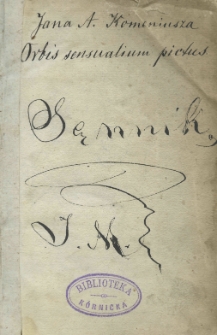 Jana A. Komeniusza
Orbis sensualium pictus
Sennik.
J. M.
BIBLIOTEKA
KÓRNICKA